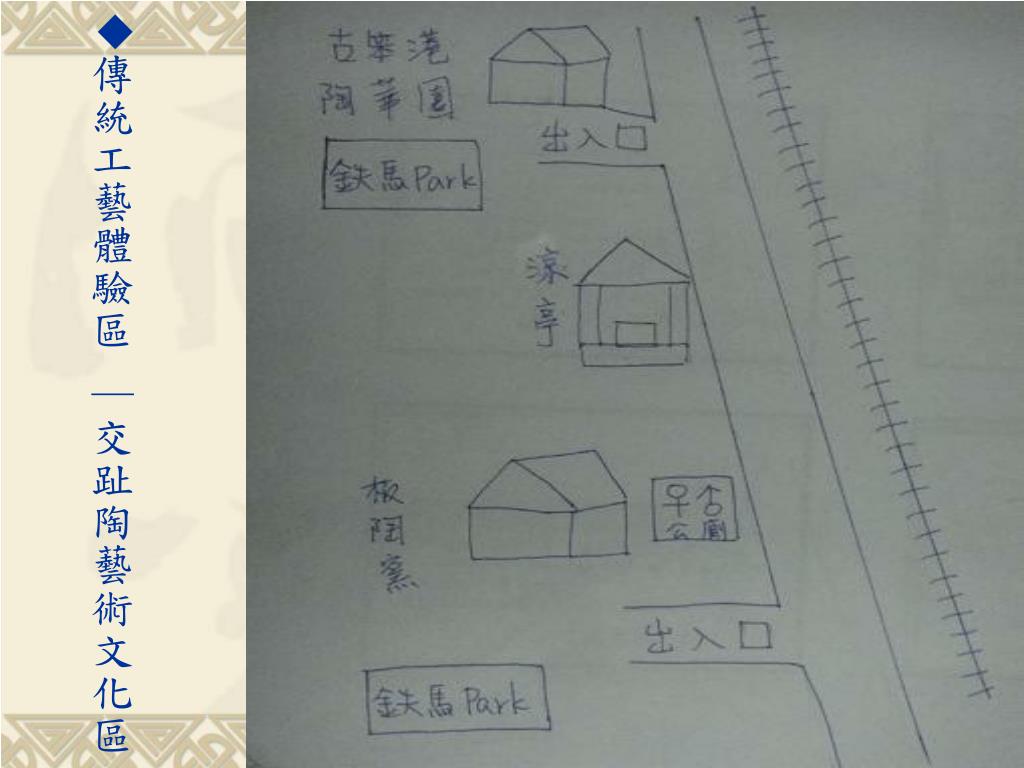 ◆傳統工藝體驗區｜交趾陶藝術文化區
古笨港
陶華園
鉄馬Park
出入口
涼亭
板陶窯
公園
出入口
鉄馬Park